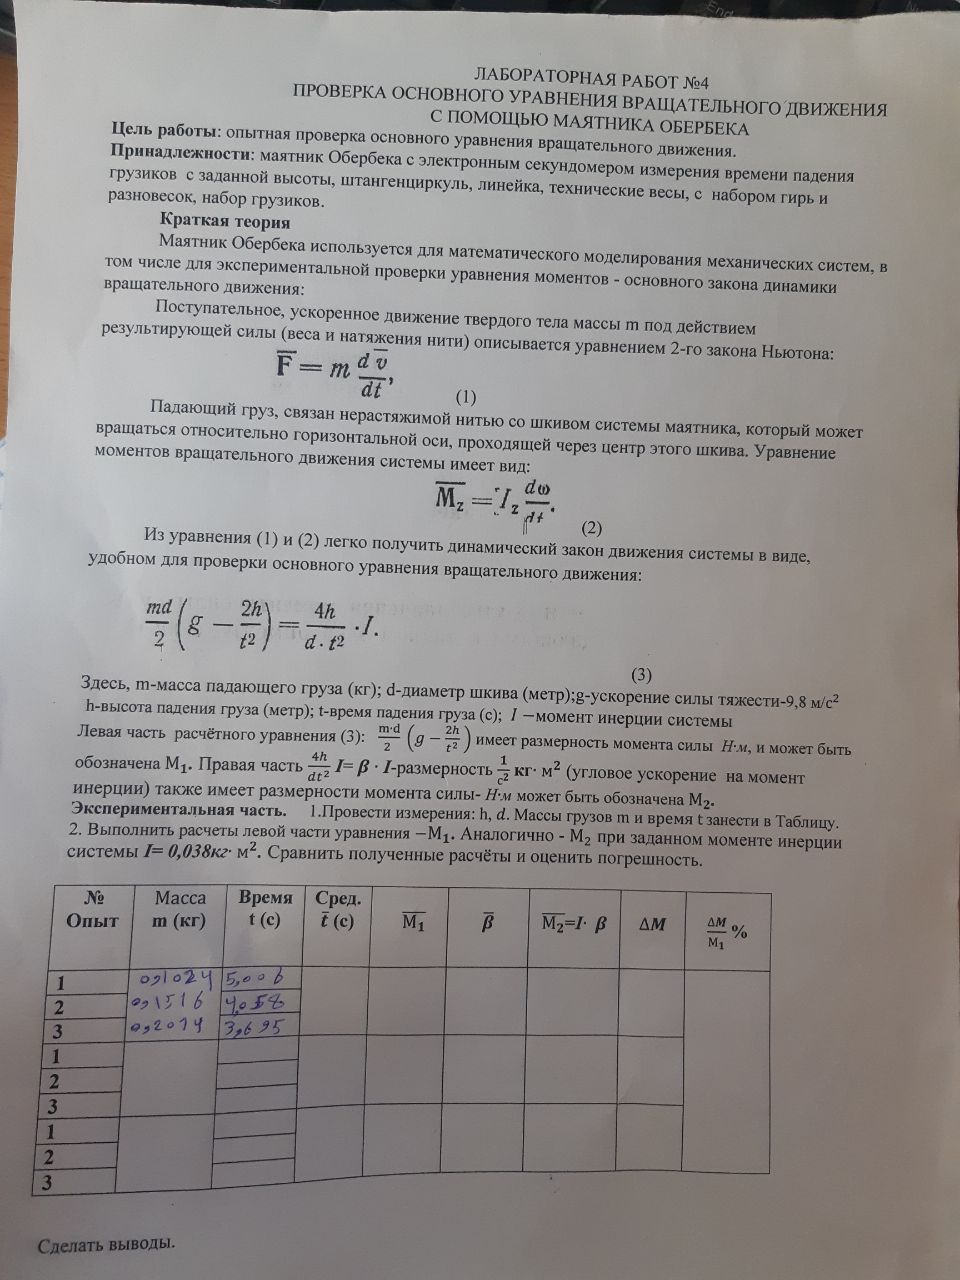 ЛАБОРАТОРНАЯ РАБОТ №4
ПРОВЕРКА ОСНОВНОГО УРАВНЕНИЯ ВРАЩАТЕЛЬНОГО ДВИЖЕНИЯ
С ПОМОЩЬЮ МАЯТНИКА ОБЕРБЕКА
Цель работы: опытная проверка основного уравнения вращательного движения.
Принадлежности: маятник Обербека с электронным секундомером измерения времени падения
грузиков с заданной высоты, штангенциркуль, линейка, технические весы, с набором гирь и
разновесок, набор грузиков.
Краткая теория
Маятник Обербека используется для математического моделирования механических систем, в
том числе для экспериментальной проверки уравнения моментов - основного закона динамики
вращательного движения:
Поступательное, ускоренное движение твердого тела массы m под действием
результирующей силы (веса и натяжения нити) описывается уравнением 2-го закона Ньютона:
F̅ = m dv̅/dt, (1)
Падающий груз, связан нерастяжимой нитью со шкивом системы маятника, который может
вращаться относительно горизонтальной оси, проходящей через центр этого шкива. Уравнение
моментов вращательного движения системы имеет вид:
M̅z = Iz dω/dt. (2)
Из уравнения (1) и (2) легко получить динамический закон движения системы в виде,
удобном для проверки основного уравнения вращательного движения:
md/2 (g − 2h/t2) = 4h/d · t2 · I.
(3)
Здесь, m-масса падающего груза (кг); d-диаметр шкива (метр);g-ускорение силы тяжести-9,8 м/с²
h-высота падения груза (метр); t-время падения груза (с); I −момент инерции системы
Левая часть расчётного уравнения (3): m·d/2 (g − 2h/t²) имеет размерность момента силы Н·м, и может быть
обозначена M₁. Правая часть 4h/dt² I= β · I-размерность 1/c² кг· м² (угловое ускорение на момент
инерции) также имеет размерности момента силы- Н·м может быть обозначена M₂.
Экспериментальная часть. 1.Провести измерения: h, d. Массы грузов m и время t занести в Таблицу.
2. Выполнить расчеты левой части уравнения −M₁. Аналогично - M₂ при заданном моменте инерции
системы I= 0,038кг· м². Сравнить полученные расчёты и оценить погрешность.
№ Опыт Масса m (кг) Время t (с) Сред. t̅ (с) M̅₁ β̅ M̅₂=I· β ΔM ΔM/M₁ %
1 0,1024 5,006
2 0,1516 4,058
3 0,2014 3,695
1
2
3
1
2
3
Сделать выводы.